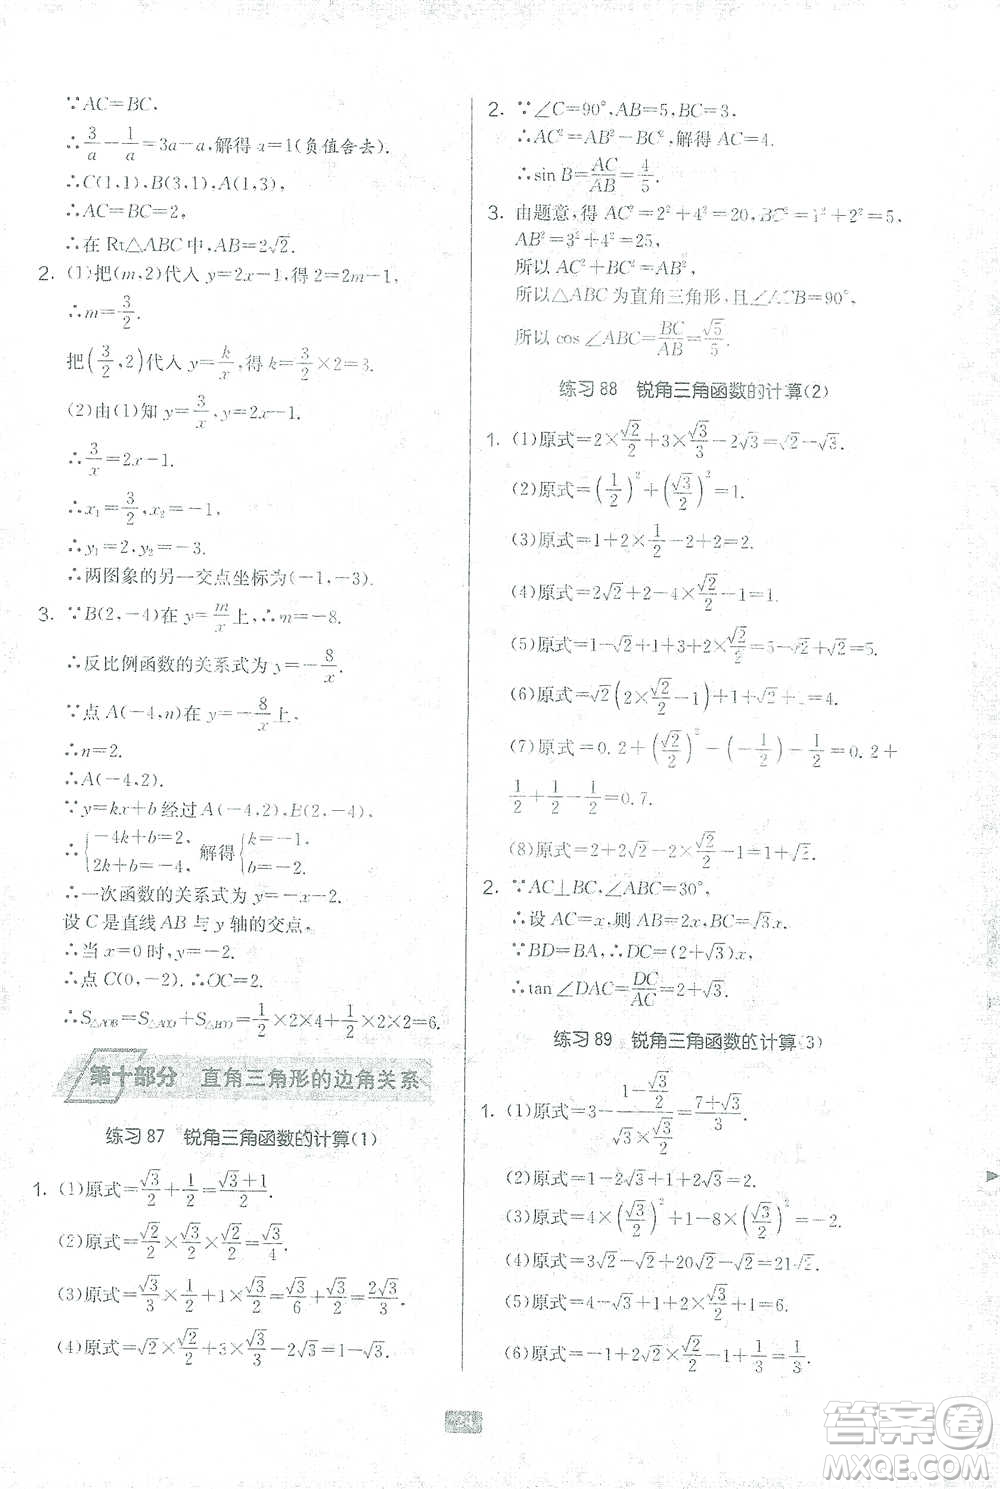 ∵AC=BC,
∴3/a-1/a=3a-a,解得 a=1(负值舍去).
∴C(1,1),B(3,1),A(1,3),
∴AC=BC=2,
∴在 Rt△ABC 中,AB=2√2.
2. (1)把(m,2)代入 y=2x-1,得 2=2m-1,
∴m=3/2.
把(3/2,2)代入 y=k/x,得 k=3/2×2=3.
(2)由(1)知 y=3/x,y=2x-1.
∴3/x=2x-1.
∴x₁=3/2,x₂=-1,
∴y₁=2,y₂=-3.
∴两图象的另一交点坐标为(-1,-3).
3. ∵B(2,-4)在 y=m/x上,∴m=-8.
∴反比例函数的关系式为 y=-8/x.
∵点 A(-4,n)在 y=-8/x上,
∴n=2.
∴A(-4,2).
∵y=kx+b 经过 A(-4,2),B(2,-4),
∴{-4k+b=2, 2k+b=-4, 解得{k=-1, b=-2.
∴一次函数的关系式为 y=-x-2.
设 C 是直线 AB 与 y 轴的交点,
∴当 x=0时,y=-2.
∴点 C(0,-2).∴OC=2.
∴S△AOB=S△ACO+S△BCO=1/2×2×4+1/2×2×2=6.
第十部分 直角三角形的边角关系
练习 87 锐角三角函数的计算(1)
1. (1)原式=√3/2+1/2=(√3+1)/2.
(2)原式=√2/2×√3/2×√2/2=√3/4.
(3)原式=√3/3×1/2+1×√3/2=√3/6+√3/2=2√3/3.
(4)原式=√2×√2/2+3×√3/3-2√3=1-√3.
2. ∵∠C=90°,AB=5,BC=3.
∴AC²=AB²-BC²,∴AC=4.
∴sin B=AC/AB=4/5.
3. 由题意,得 AC²=2²+4²=20,BC²=1²+2²=5,
AB²=3²+4²=25,
所以 AC²+BC²=AB²,
所以△ABC 为直角三角形,且∠ACB=90°,
所以 cos ∠ABC=BC/AB=√5/5.
练习 88 锐角三角函数的计算(2)
1. (1)原式=2×√2/2+3×√3/3-2√3=√2-√3.
(2)原式=(1/2)²+(√3/2)²=1.
(3)原式=1+2×1/2-2+2=2.
(4)原式=2√2+1-4×√2/2=1.
(5)原式=1-√2+1+3+2×√2/2=5.
(6)原式=√2(2×√2/2-1)+1+√2+1=4.
(7)原式=0.2+(√2/2)²-(-1/2)-(-1/2)=0.2+
1/2+1/2+1/2=0.7.
(8)原式=2+2√2-4×√2/2=2.
2. ∵AC⊥BC,∠ABC=30°,
∴设 AC=x,则 AB=2x,BC=√3x.
∵BD=BA,∴DC=(2+√3)x,
∴tan ∠DAC=DC/AC=2+√3.
练习 89 锐角三角函数的计算(3)
1. (1)原式=3-(√3/3)/(√3×√3/2)+√3/3=(7+√3)/3.
(2)原式=1-2√3+1+2√3=2.
(3)原式=4×(√3/2)²+1-8×(√3/2)²=-2.
(4)原式=3√2-√2+20√2-2=21√2-2.
(5)原式=4-8×1/2+1=1.
(6)原式=-1+2√2×√2/2-1+1/3=1/3.
答案圈
MXQE.COM